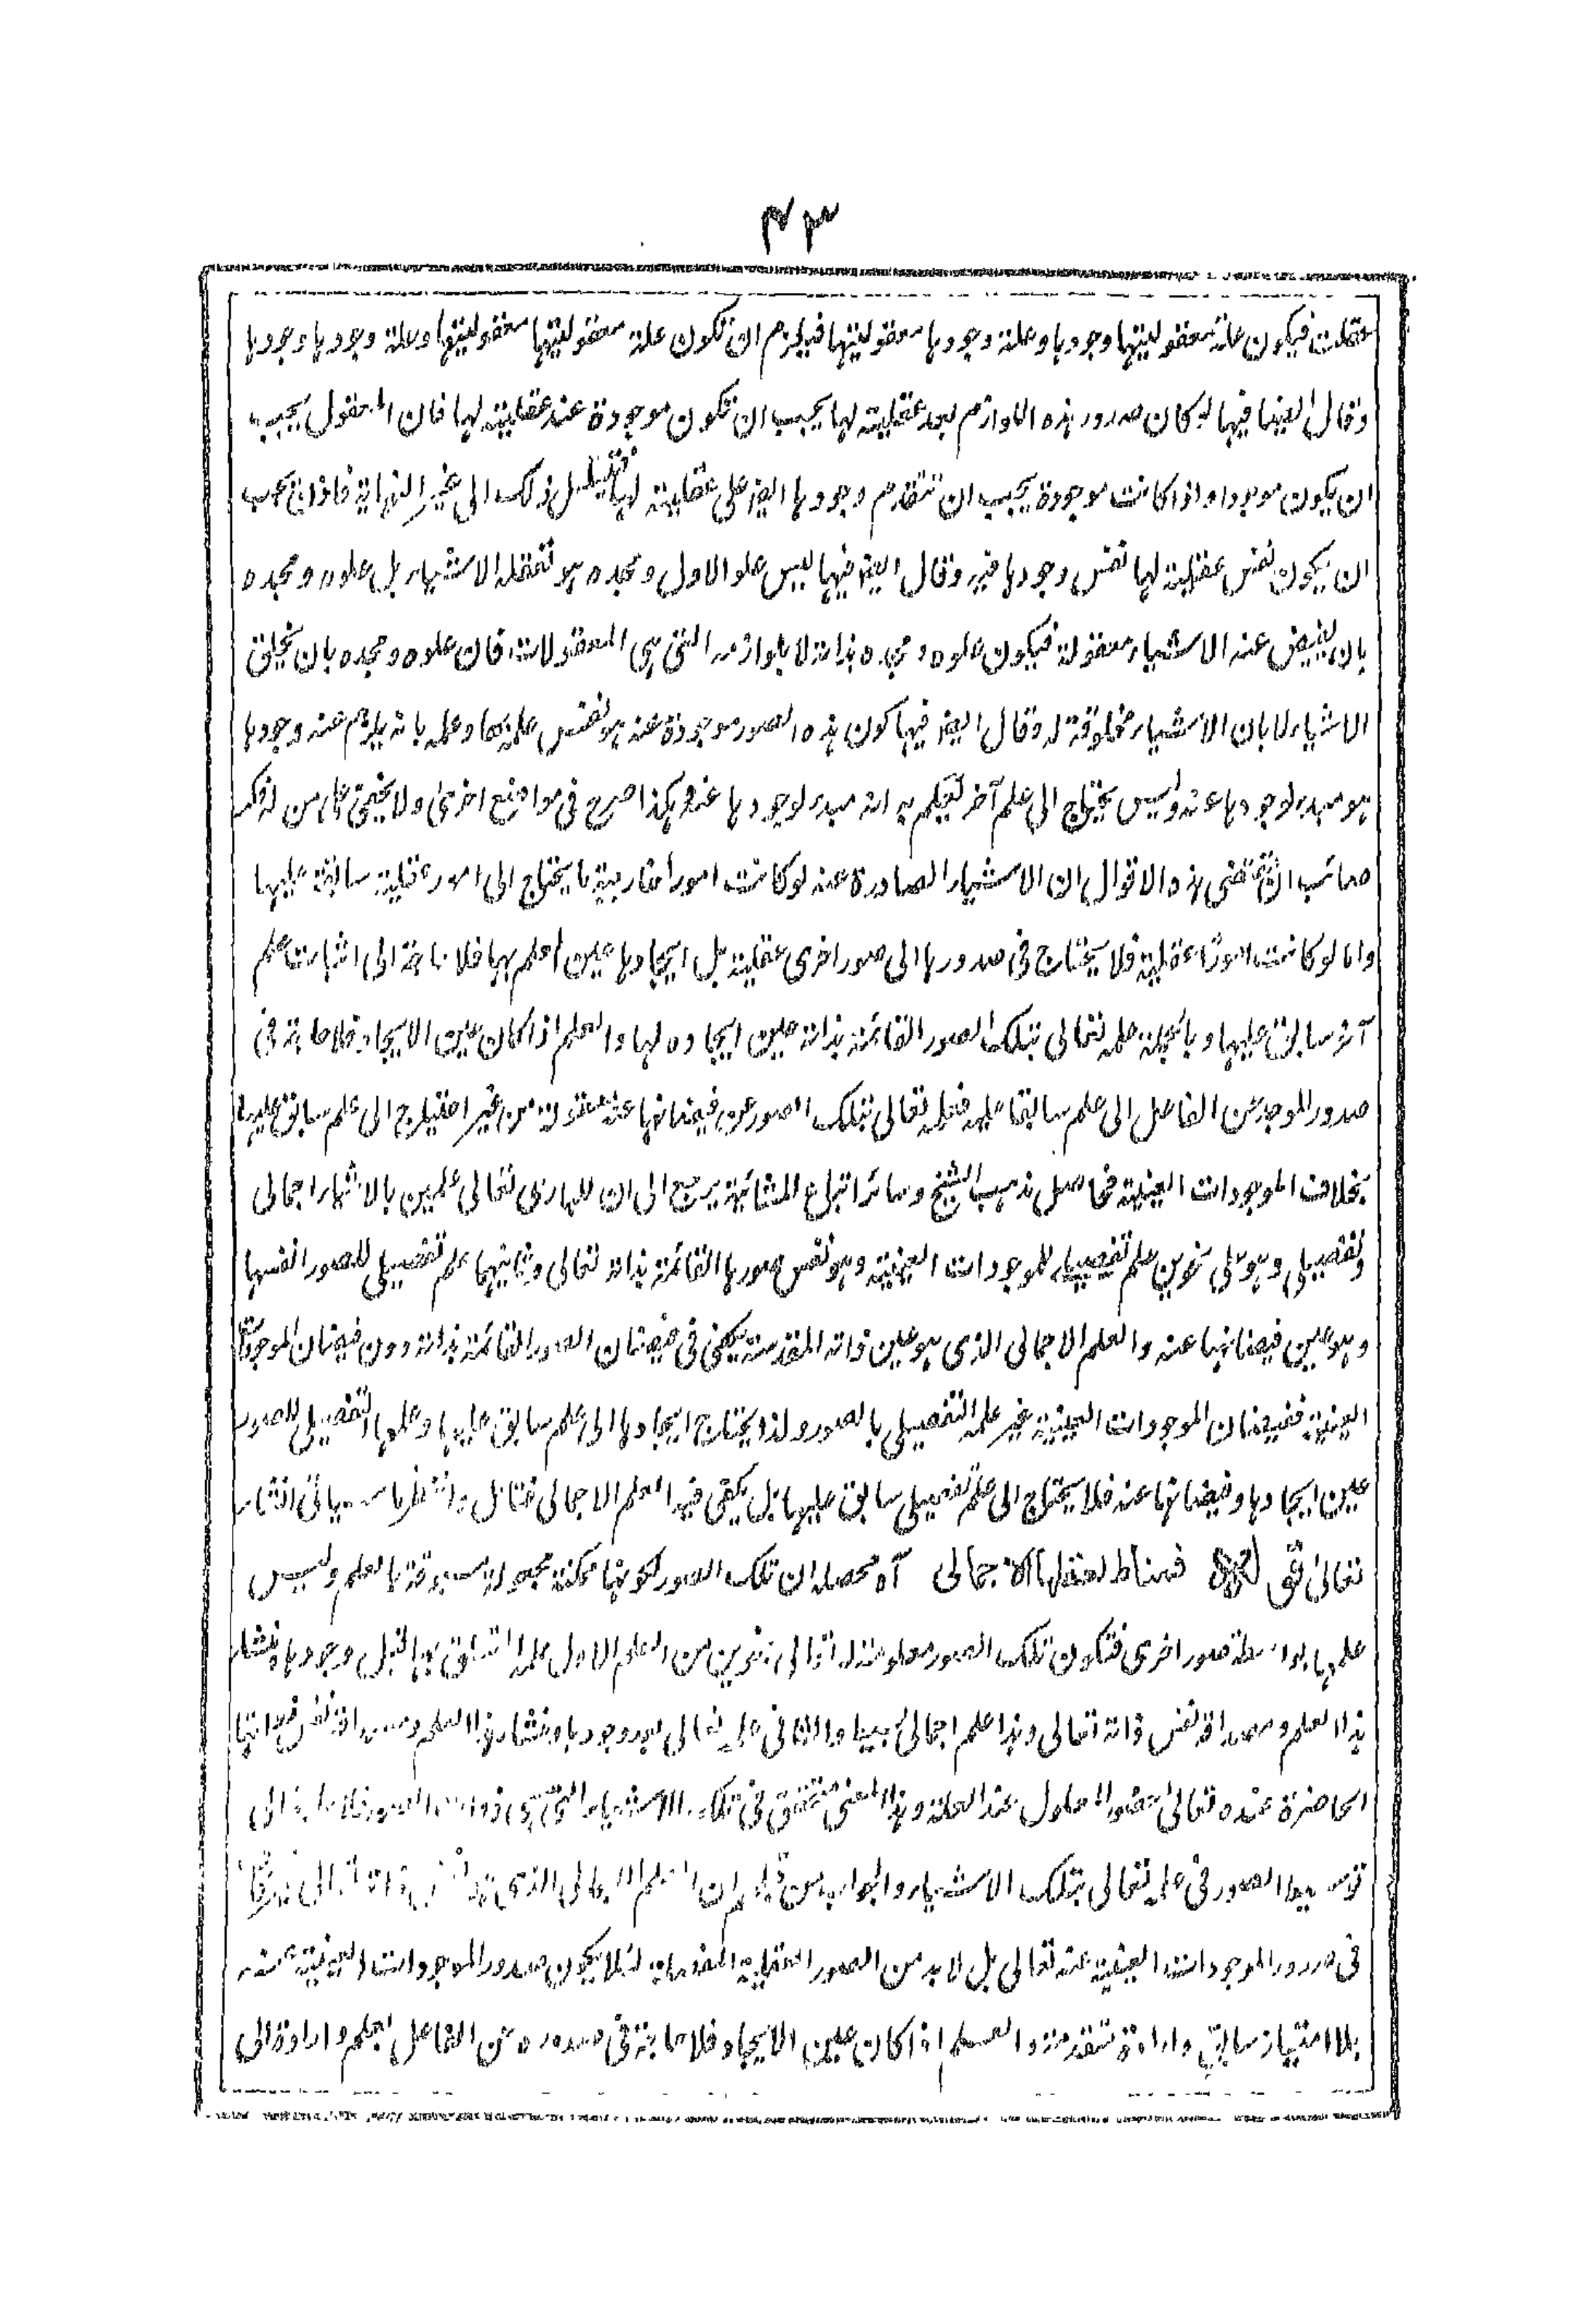 ٤٣
عقلت فيكون علة معقوليتها وجودها وعلة وجودها معقوليتها فيلزم ان تكون علة معقوليتها معقوليتها وعلة وجودها وجودها
وقال ايضا فيها لو كان صدور هذه اللوازم بعد عقليته لها يجب ان تكون موجودة عند عقليته لها فان المعقول يجب
ان يكون موجودا واذا كانت موجودة يجب ان تتقدم وجودها ايضا على عقليته لها فيتسلسل ذلك الى غير النهاية فاذن يجب
ان يكون نفس عقليته لها نفس وجودها فيه وقال ايضا فيها ليس علو الاول ومجده هو تعقله الاشياء بل علوه ومجده
بان يفيض عنه الاشياء معقولة فيكون علوه ومجده بذاته لا بلوازمه التي هي المعقولات فان علوه ومجده بان يخلق
الاشياء لا بان الاشياء مخلوقة له وقال ايضا فيها كون هذه الصور موجودة عنه هو نفس علمه بها وعلمه بانه يلزم عنه وجودها
هو مبدء لوجودها عنه وليس يحتاج الى علم آخر ليعلم به انه مبدء لوجودها عنه وهكذا صرح في مواضع اخرى ولا يخفى على من له فكر
صائب ان مقتضى هذه الاقوال ان الاشياء الصادرة عنه لو كانت امورا خارجية ما يحتاج الى امور عقلية سابقة عليها
واما لو كانت امورًا عقلية فلا يحتاج في صدورها الى صور اخرى عقلية بل ايجادها عين العلم بها فلا حاجة الى اثبات علم
آخر سابق عليها وبالجملة علمه تعالى بتلك الصور القائمة بذاته عين ايجاده لها والعلم اذا كان عين الايجاد فلا حاجة في
صدور الموجد عن الفاعل الى علم سابق عليه فعلمه تعالى بتلك الصور عين فيضانها عنه معقولة من غير احتياج الى علم سابق عليها
بخلاف الموجودات العينية فحاصل مذهب الشيخ وسائر اتباع المشائية يرجع الى ان للباري تعالى علمين بالاشياء اجمالى
وتفصيلى وهو على نحوين علم تفصيلى للموجودات العينية وهو نفس صورها القائمة بذاته تعالى وثانيهما علم تفصيلى للصور انفسها
وهو عين فيضانها عنه والعلم الاجمالى الذى هو عين ذاته المقدسة يكفى في فيضان الصور القائمة بذاته دون فيضان الموجودات
العينية ففيضان الموجودات العينية غير علمه التفصيلى بالصور ولذا يحتاج ايجادها الى علم سابق عليها وعلمه التفصيلى للصور
عين ايجادها وفيضانها عنه فلا يحتاج الى علم تفصيلى سابق عليها بل يكفى فيه العلم الاجمالى فتأمل وانتظر ما سيأتى انشاء
تعالى قوله فمناط تعقلها الاجمالى آه محصله ان تلك الصور لكونها ممكنة مجعولة مسبوقة بالعلم وليس
علمها بواسطة صور اخرى فتكون تلك الصور معلومة له تعالى بنحوين من العلم الاول علمه المتعلق بها قبل وجودها ومنشاء
هذا العلم ومصداقه نفس ذاته تعالى وهذا علم اجمالى بها والثانى علمه تعالى بعد وجودها ومنشاء هذا العلم ومصداقه نفس فيضانها
الحاضرة عنده تعالى حضور المعلول عند العلة وهذا المعنى متحقق في تلك الاشياء التى هى ذوات الصور فلا حاجة الى
توسيط الصور في علمه تعالى بتلك الاشياء والجواب من قبلهم ان العلم الاجمالى الذى
في صدور الموجودات العينية عنه تعالى بل لا بد من الصور العقلية لئلا يكون صدور الموجودات العينية عنه
بلا امتياز سابق وارادة متقدمة والعلم اذا كان عين الايجاد فلا حاجة في صدوره عن الفاعل بعلم وارادة الى